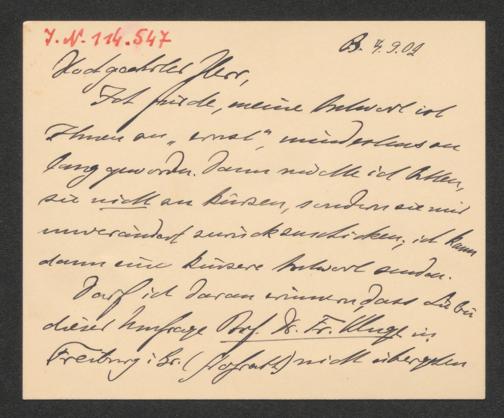 J.N. 114.547
B. 4.9.02
Hochgeehrter Herr,
Ich finde, meine Antwort ist
Ihnen an „ernst“, mindestens an
lang geworden. Dann möchte ich bitten,
sie nicht zu kürzen, sondern sie mir
unverändert zurückzuschicken; ich kann
dann eine kürzere Antwort senden.
Darf ich daran erinnern, dass Sie bei
dieser Umfrage Prof. Dr. Fr. Kluge in
Freiburg i. Br. (Hofrath) nicht übergehen